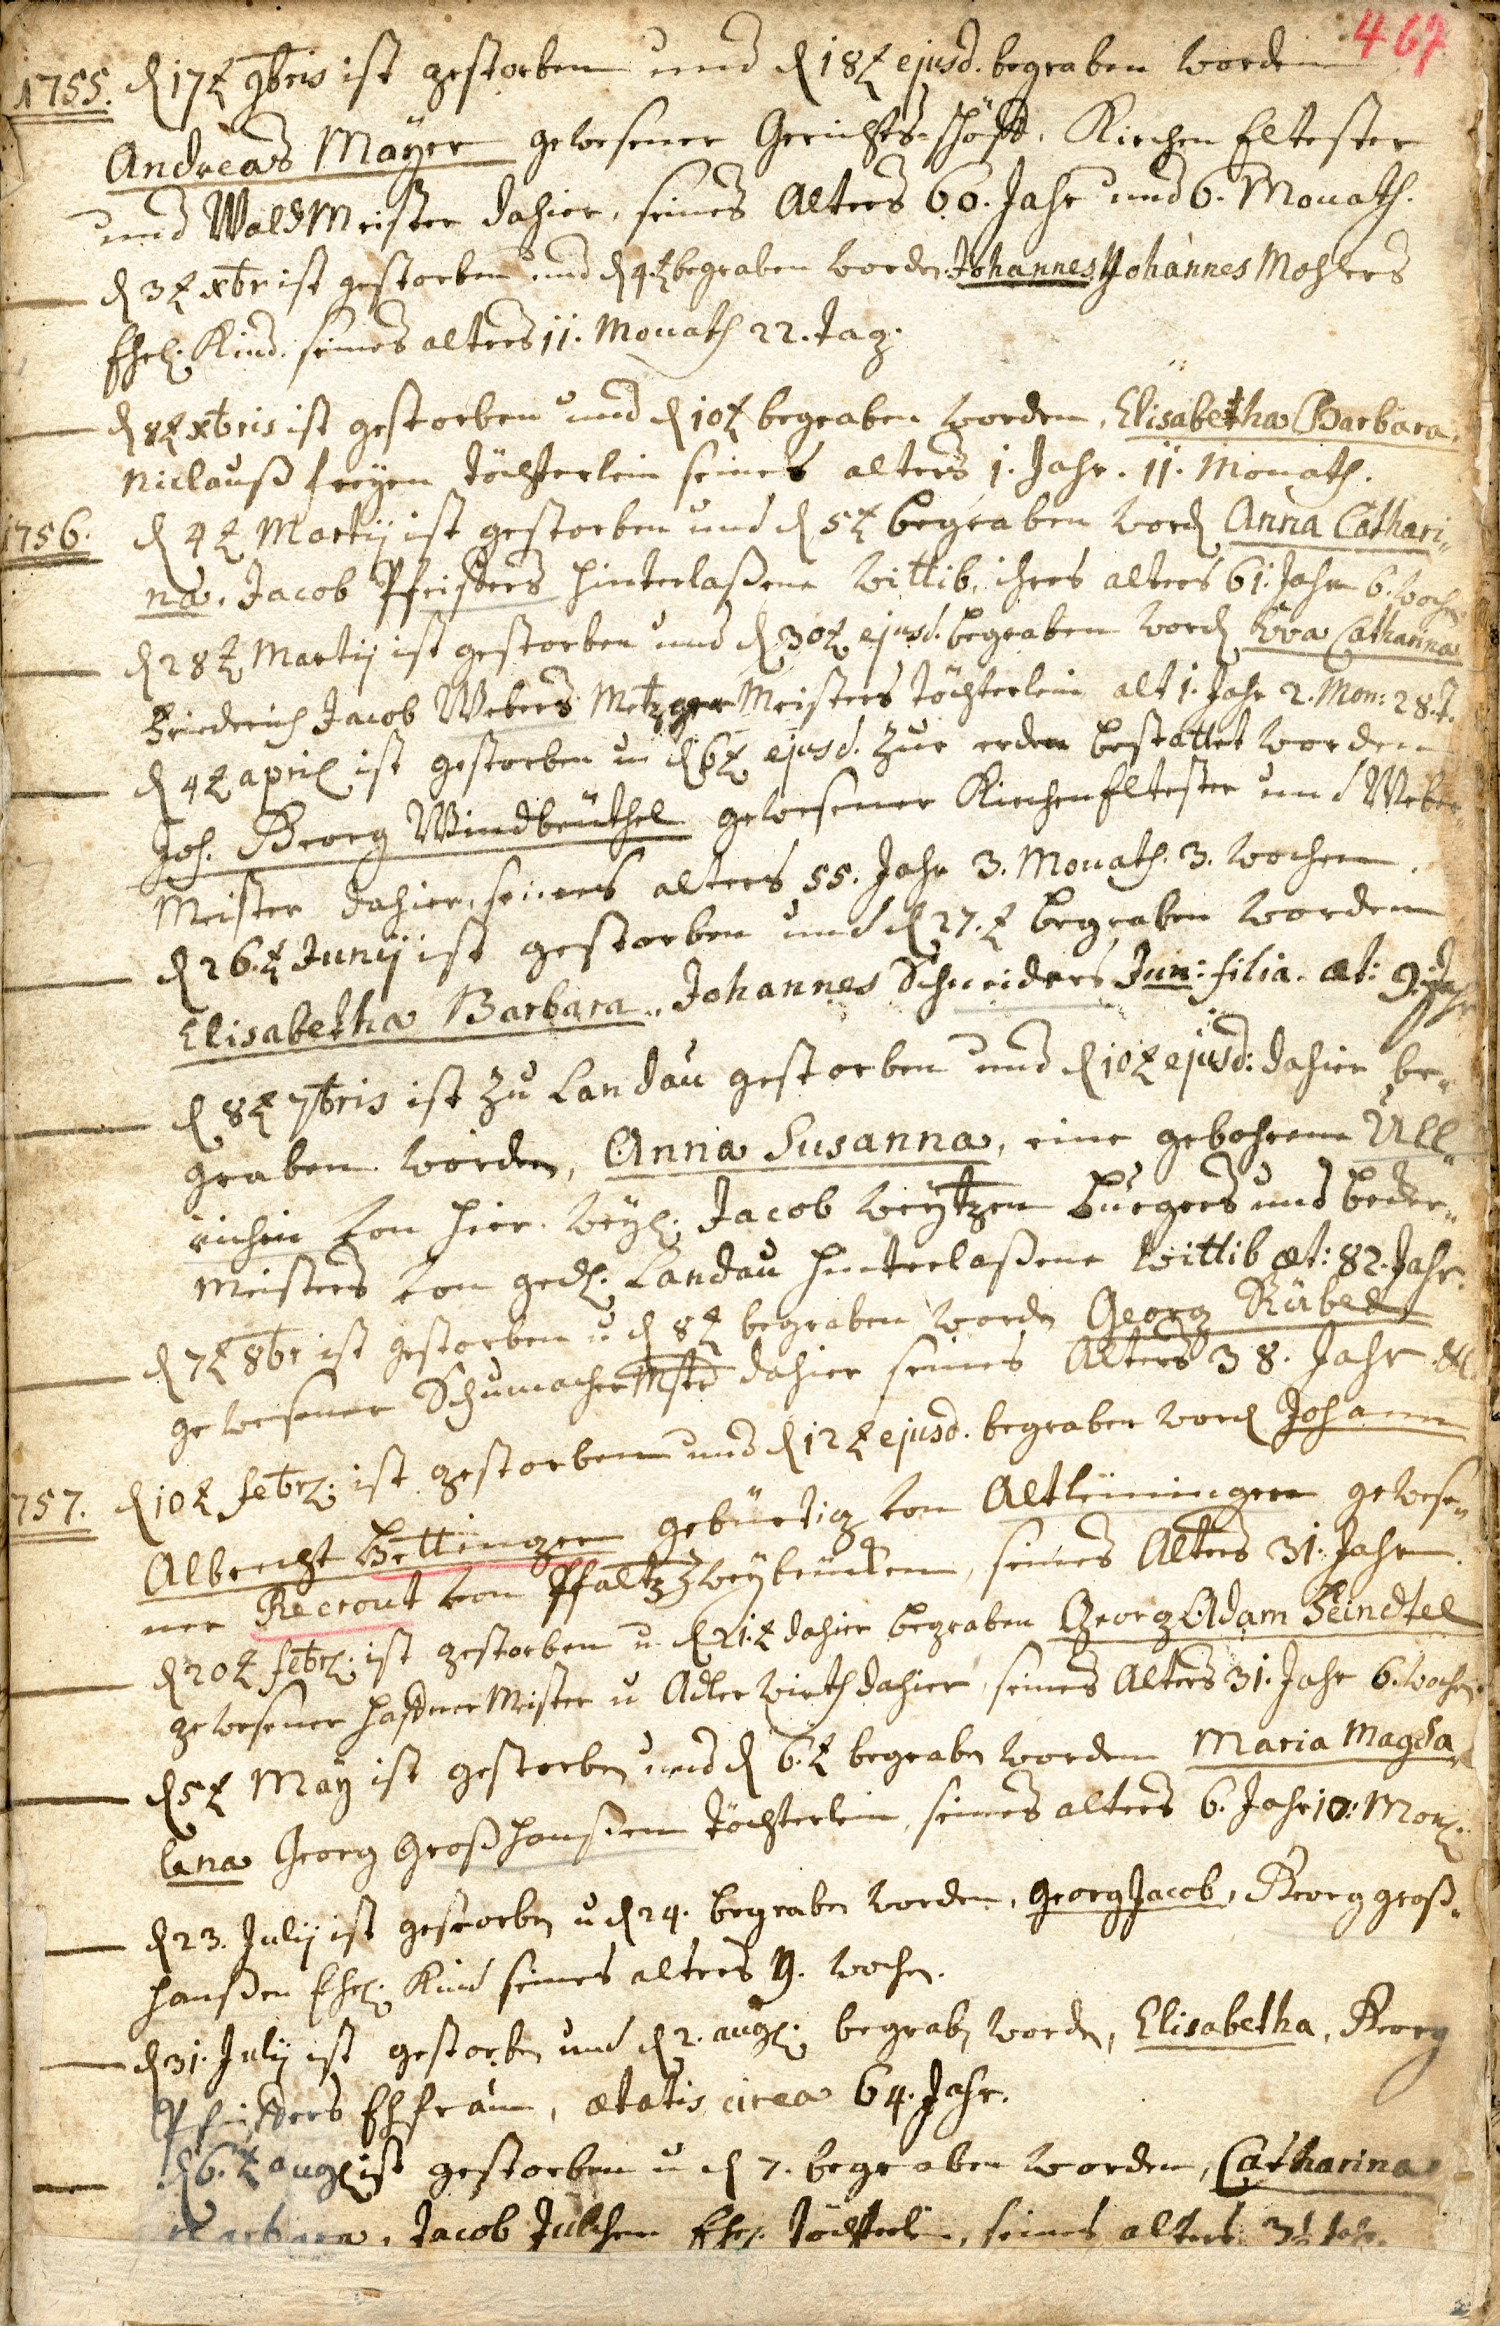 467
1755. d 17t 9bris ist gestorben und d 18t ejusd. begraben worden
Andreas Mayer gewesener Gerichts-schöff, Kirchen Eltester
und WaldMeister dahier, seines Alters 60. Jahr und 6. Monath.
d 3t xbr ist gestorben und d 4t begraben worden Johannes, Johannes Mohlers
Ehel. Kind. seines alters 11. Monath 22. Tag.
d 8t xbris ist gestorben und d 10t begraben worden, Elisabetha Barbara,
Niclauß freyen töchterlein seines alters 1. Jahr. 11. Monath.
1756. d 4t Martij ist gestorben und d 5t begraben word Anna Cathari-
na, Jacob Pfeisters hinterlaßene Wittib, ihres alters 61. Jahr 6. woch
d 28t Martij ist gestorben und d 30t ejusd. begraben word Eva Catharina
Friederich Jacob Webers Metzger Meisters töchterlein alt 1. Jahr 2. Mon: 28. T.
d 4t april ist gestorben u d 6t ejusd. zur erden bestattet worden
Joh. Georg Windbeuthel gewesener KirchenEltester und Weber-
Meister dahier, seines alters 55. Jahr 3. Monath. 3. wochen.
d 26.t Junij ist gestorben und d 27.t begraben worden
Elisabetha Barbara, Johannes Schneiders Jun: filia. æt: 9. Jahr
d 8t 7bris ist zu Landau gestorben und d 10t ejusd: dahier be-
graben worden, Anna Susanna, eine gebohrene Ull-
richin von hier. weyl. Jacob Weytzen burgers und becker-
Meisters von ged. Landau hinterlaßene Wittib æt: 82. Jahr.
d 7t 8br ist gestorben u d 8t begraben worden Georg Rübel
gewesener SchumacherMstr dahier seines Alters 38. Jahr
757. d 10t febr: ist gestorben und d 12t ejusd. begraben word Johann
Albrecht Bettinger gebürtig von Altleiningen gewese-
ner Recrout von Pfaltz Zweybrücken, seines Alters 31. Jahr.
d 20t febr: ist gestorben u. d 21.t dahier begraben Georg Adam Beindtel
gewesener haffner Meister u Adler Wirth dahier, seines Alters 31. Jahr 6. wochen
d 5t May ist gestorben und d 6.t begraben worden Maria Magda
lena Georg Großhanßen töchterlein, seines alters 6. Jahr 10: Mon.
d 23. Julij ist gestorben u d 24. begraben worden, Georg Jacob, Georg groß-
hanßen Ehel. Kind seines alters 19. wochen.
d 31. Julij ist gestorben und d 2. aug. begrab worden, Elisabetha, Georg
Pfeisters Ehfrau, ætatis circa 64. Jahr.
d 6.t aug ist gestorben u d 7. begraben worden, Catharina
Barbara, Jacob Julchen Ehel. töchterlein, seines alters Jahr.